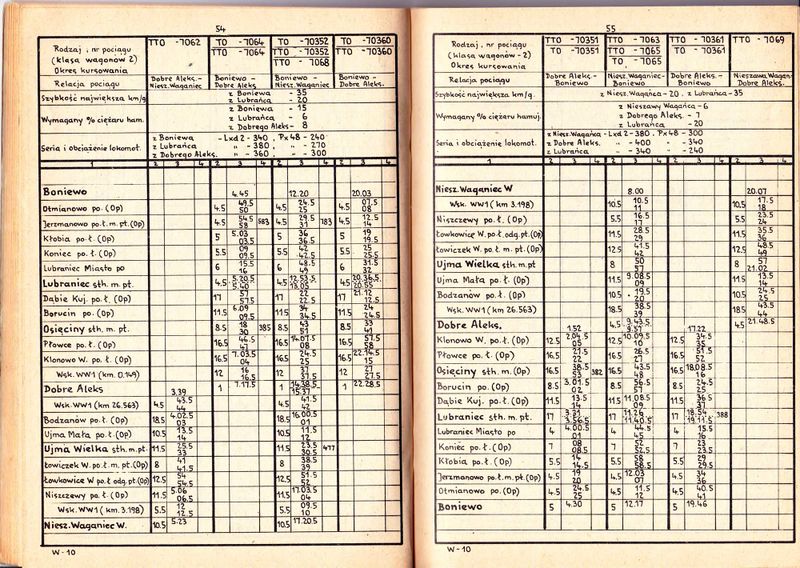 54
Rodzaj, nr pociągu
(klasa wagonów 2)
Okres kursowania
TTO -7062
TO -7064
TTO -7064
TO -70352
TTO -70352
TTO -7068
TO -70360
TTO -70360
Relacja pociągu
Dobre Aleks.-
Niesz.Waganiec
Boniewo -
Dobre Aleks
Boniewo -
Niesz. Waganiec
Boniewo -
Dobre Aleks.
Szybkość największa km/g.
z Boniewa - 35
z Lubrańca - 20
Wymagany % ciężaru ham.
z Boniewa - 15
z Lubrańca - 6
z Dobrego Aleks - 8
Seria i obciążenie lokomot.
z Boniewa - Lxd2 - 340, Px48 - 240
z Lubrańca " - 380, " - 270
z Dobrego Aleks. " - 360, " - 300
1 2 3 4 2 3 4 2 3 4 2 3 4
Boniewo 4.45 12.20 20.03
Otmianowo po. (Op) 4.5 49.5 50 4.5 24.5 25 4.5 07.5 08
Jerzmanowo po.ł.m.pt.(Op) 4.5 54.5 58 583 4.5 29.5 31 783 4.5 12.5 14
Kłobia po ł. (Op) 5 5.03 03.5 5 36 36.5 5 19 19.5
Koniec po ł. (Op) 5.5 09 09.5 5.5 42 42.5 5.5 25 25.5
Lubraniec Miasto po 6 15.5 16 6 48.5 49 6 31.5 32
Lubraniec sth.m.pt. 4.5 5.20.5 5.40 4.5 12.53.5 13.05 4.5 20.36.5 20.55
Dąbie Kuj. po ł. (Op) 17 57 57.5 17 22 22.5 17 21.12 12.5
Borucin po. (Op) 11.5 6.09 09.5 11.5 34 34.5 11.5 24 24.5
Osięciny sth. m. pt. 8.5 18 30 385 8.5 43 51 8.5 33 41
Płowce po ł. (Op) 16.5 46.5 47 16.5 14.07.5 08 16.5 57.5 58
Kłonowo W. po ł. (Op) 16.5 7.03.5 04 16.5 24.5 25 16.5 22.14.5 15
Wsk. WW1 (km 0.149) 12 16 16.5 12 37 37.5 12 27 27.5
Dobre Aleks 3.39 1 7.17.5 1 14.38.5 15.37 1 22.28.5
Wsk. WW1 (km 26.563) 4.5 43.5 44 4.5 41.5 42
Bodzanów po ł. (Op) 18.5 4.02.5 03 18.5 16.00.5 01
Ujma Mała po ł. (Op) 10.5 13.5 14 10.5 11.5 12
Ujma Wielka sth. m. pt. 11.5 25.5 33 11.5 23.5 30.5 477
Łowiczek W. po ł. m. pt. (Op) 8 41 41.5 8 38.5 39
Łowkowice W. po ł. odg. pt. (Op) 11.5 54 54.5 11.5 51.5 52
Niszczewy po ł. (Op) 11.5 5.06 06.5 11.5 17.03.5 04
Wsk. WW1 (km 3.198) 5.5 12 12.5 5.5 09.5 10
Niesz. Waganiec W. 10.5 5.23 10.5 17.20.5
W-10
55
Rodzaj, nr pociągu
(klasa wagonów - 2)
Okres kursowania
TTO -70351
TO -70351
TO -7063
TTO -7065
TO -7065
TTO -70361
TO -70361
TTO -7069
Relacja pociągu
Dobre Aleks.-
Boniewo
Niesz. Waganiec-
Boniewo
Dobre Aleks.-
Boniewo
Nieszawa Wagan.-
Dobre Aleks.
Szybkość największa km/g.
z Niesz. Wagańca - 20 . z Lubrańca - 35
Wymagany % ciężaru hamuj.
z Nieszawy Wagańca - 6
z Dobrego Aleks. - 7
z Lubrańca - 20
Seria i obciążenie lokomot.
z Niesz. Wagańca - Lxd 2 - 380, Px 48 - 300
z Dobre Aleks. " - 400 " - 340
z Lubrańca " - 340 " - 240
1 2 3 4 2 3 4 2 3 4 2 3 4
Niesz. Waganiec W 8.00 20.07
Wsk. WW1 (km 3.198) 10.5 10.5 11 10.5 17.5 18
Niszczewy po ł. (Op) 5.5 16.5 17 5.5 23.5 24
Łowkowice W. po ł. odg. pt. (Op) 11.5 28.5 29 11.5 35.5 36
Łowiczek W. po ł. m. pt. (Op) 11.5 41.5 42 11.5 48.5 49
Ujma Wielka sth. m. pt 8 50 57 8 57 21.02
Ujma Mała po ł. (Op) 11.5 9.08.5 09 11.5 13.5 14
Bodzanów po ł. (Op) 10.5 19.5 20 10.5 24.5 25
Wsk. WW1 (km 26.563) 18.5 38.5 39 18.5 43.5 44
Dobre Aleks. 1.52 4.5 9.43.5 9.57 17.22 4.5 21.48.5
Kłonowo W. po ł. (Op) 12.5 2.04.5 05 12.5 10.09.5 10 12.5 34.5 35
Płowce po ł. (Op) 16.5 21.5 22 16.5 26.5 27 16.5 51.5 52
Osięciny sth. m. pt 16.5 38.5 53 382 16.5 43.5 48 16.5 18.08.5 16
Borucin po ł. (Op) 8.5 3.01.5 02 8.5 56.5 57 8.5 24.5 25
Dąbie Kuj. po ł. (Op) 11.5 13.5 14 11.5 11.08.5 09 11.5 36.5 37
Lubraniec sth. m. pt. 17 3.31 3.56.5 17 11.26 11.40.5 17 18.54 19.11.5 388
Lubraniec Miasto po 4 4.00.5 01 4 44.5 45 4 15.5 16
Koniec po ł. (Op) 7 08 08.5 7 52 52.5 7 23 23.5
Kłobia po ł. (Op) 5.5 14 14.5 5.5 58 58.5 5.5 29 29.5
Jerzmanowo po ł. m. pt. (Op) 4.5 19 20 4.5 12.03 07 4.5 34 36
Otmianowo po. (Op) 4.5 24.5 25 4.5 11.5 12 4.5 40.5 41
Boniewo 5 4.30 5 12.17 5 19.46
W-10